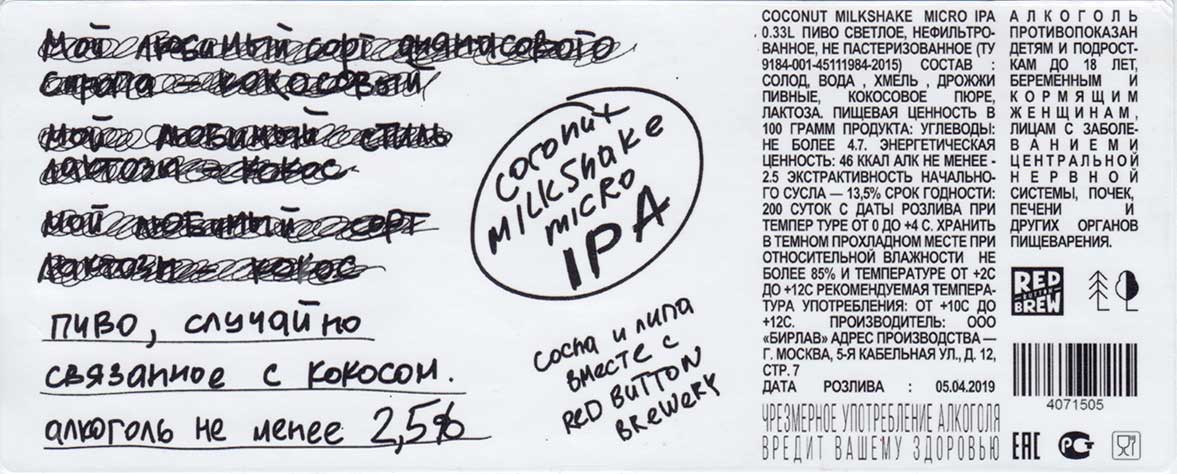 Мой любимый сорт ананасового
сиропа – кокосовый
мой любимый стиль
лактозы – кокос
мой любимый сорт
лактозы – кокос
пиво, случайно
связанное с кокосом.
алкоголь не менее 2,5%
coconut
milkshake
micro
IPA
сосна и липа
вместе с
RED BUTTON
BREWERY
COCONUT MILKSHAKE MICRO IPA
0.33L ПИВО СВЕТЛОЕ, НЕФИЛЬТРО-
ВАННОЕ, НЕ ПАСТЕРИЗОВАННОЕ (ТУ
9184-001-45111984-2015) СОСТАВ :
СОЛОД, ВОДА , ХМЕЛЬ , ДРОЖЖИ
ПИВНЫЕ, КОКОСОВОЕ ПЮРЕ,
ЛАКТОЗА. ПИЩЕВАЯ ЦЕННОСТЬ В
100 ГРАММ ПРОДУКТА: УГЛЕВОДЫ:
НЕ БОЛЕЕ 4.7. ЭНЕРГЕТИЧЕСКАЯ
ЦЕННОСТЬ: 46 ККАЛ АЛК НЕ МЕНЕЕ -
2.5 ЭКСТРАКТИВНОСТЬ НАЧАЛЬНО-
ГО СУСЛА — 13,5% СРОК ГОДНОСТИ:
200 СУТОК С ДАТЫ РОЗЛИВА ПРИ
ТЕМПЕР ТУРЕ ОТ 0 ДО +4 С. ХРАНИТЬ
В ТЕМНОМ ПРОХЛАДНОМ МЕСТЕ ПРИ
ОТНОСИТЕЛЬНОЙ ВЛАЖНОСТИ НЕ
БОЛЕЕ 85% И ТЕМПЕРАТУРЕ ОТ +2С
ДО +12С РЕКОМЕНДУЕМАЯ ТЕМПЕРА-
ТУРА УПОТРЕБЛЕНИЯ: ОТ +10С ДО
+12С. ПРОИЗВОДИТЕЛЬ: ООО
«БИРЛАВ» АДРЕС ПРОИЗВОДСТВА —
Г. МОСКВА, 5-Я КАБЕЛЬНАЯ УЛ., Д. 12,
СТР. 7
ДАТА РОЗЛИВА : 05.04.2019
ЧРЕЗМЕРНОЕ УПОТРЕБЛЕНИЕ АЛКОГОЛЯ
ВРЕДИТ ВАШЕМУ ЗДОРОВЬЮ
АЛКОГОЛЬ
ПРОТИВОПОКАЗАН
ДЕТЯМ И ПОДРОСТ-
КАМ ДО 18 ЛЕТ,
БЕРЕМЕННЫМ И
КОРМЯЩИМ
ЖЕНЩИНАМ,
ЛИЦАМ С ЗАБОЛЕ-
ВАНИЕМИ
ЦЕНТРАЛЬНОЙ
НЕРВНОЙ
СИСТЕМЫ, ПОЧЕК,
ПЕЧЕНИ И
ДРУГИХ ОРГАНОВ
ПИЩЕВАРЕНИЯ.
RED
BUTTON
BREW
4071505
EAC РСТ